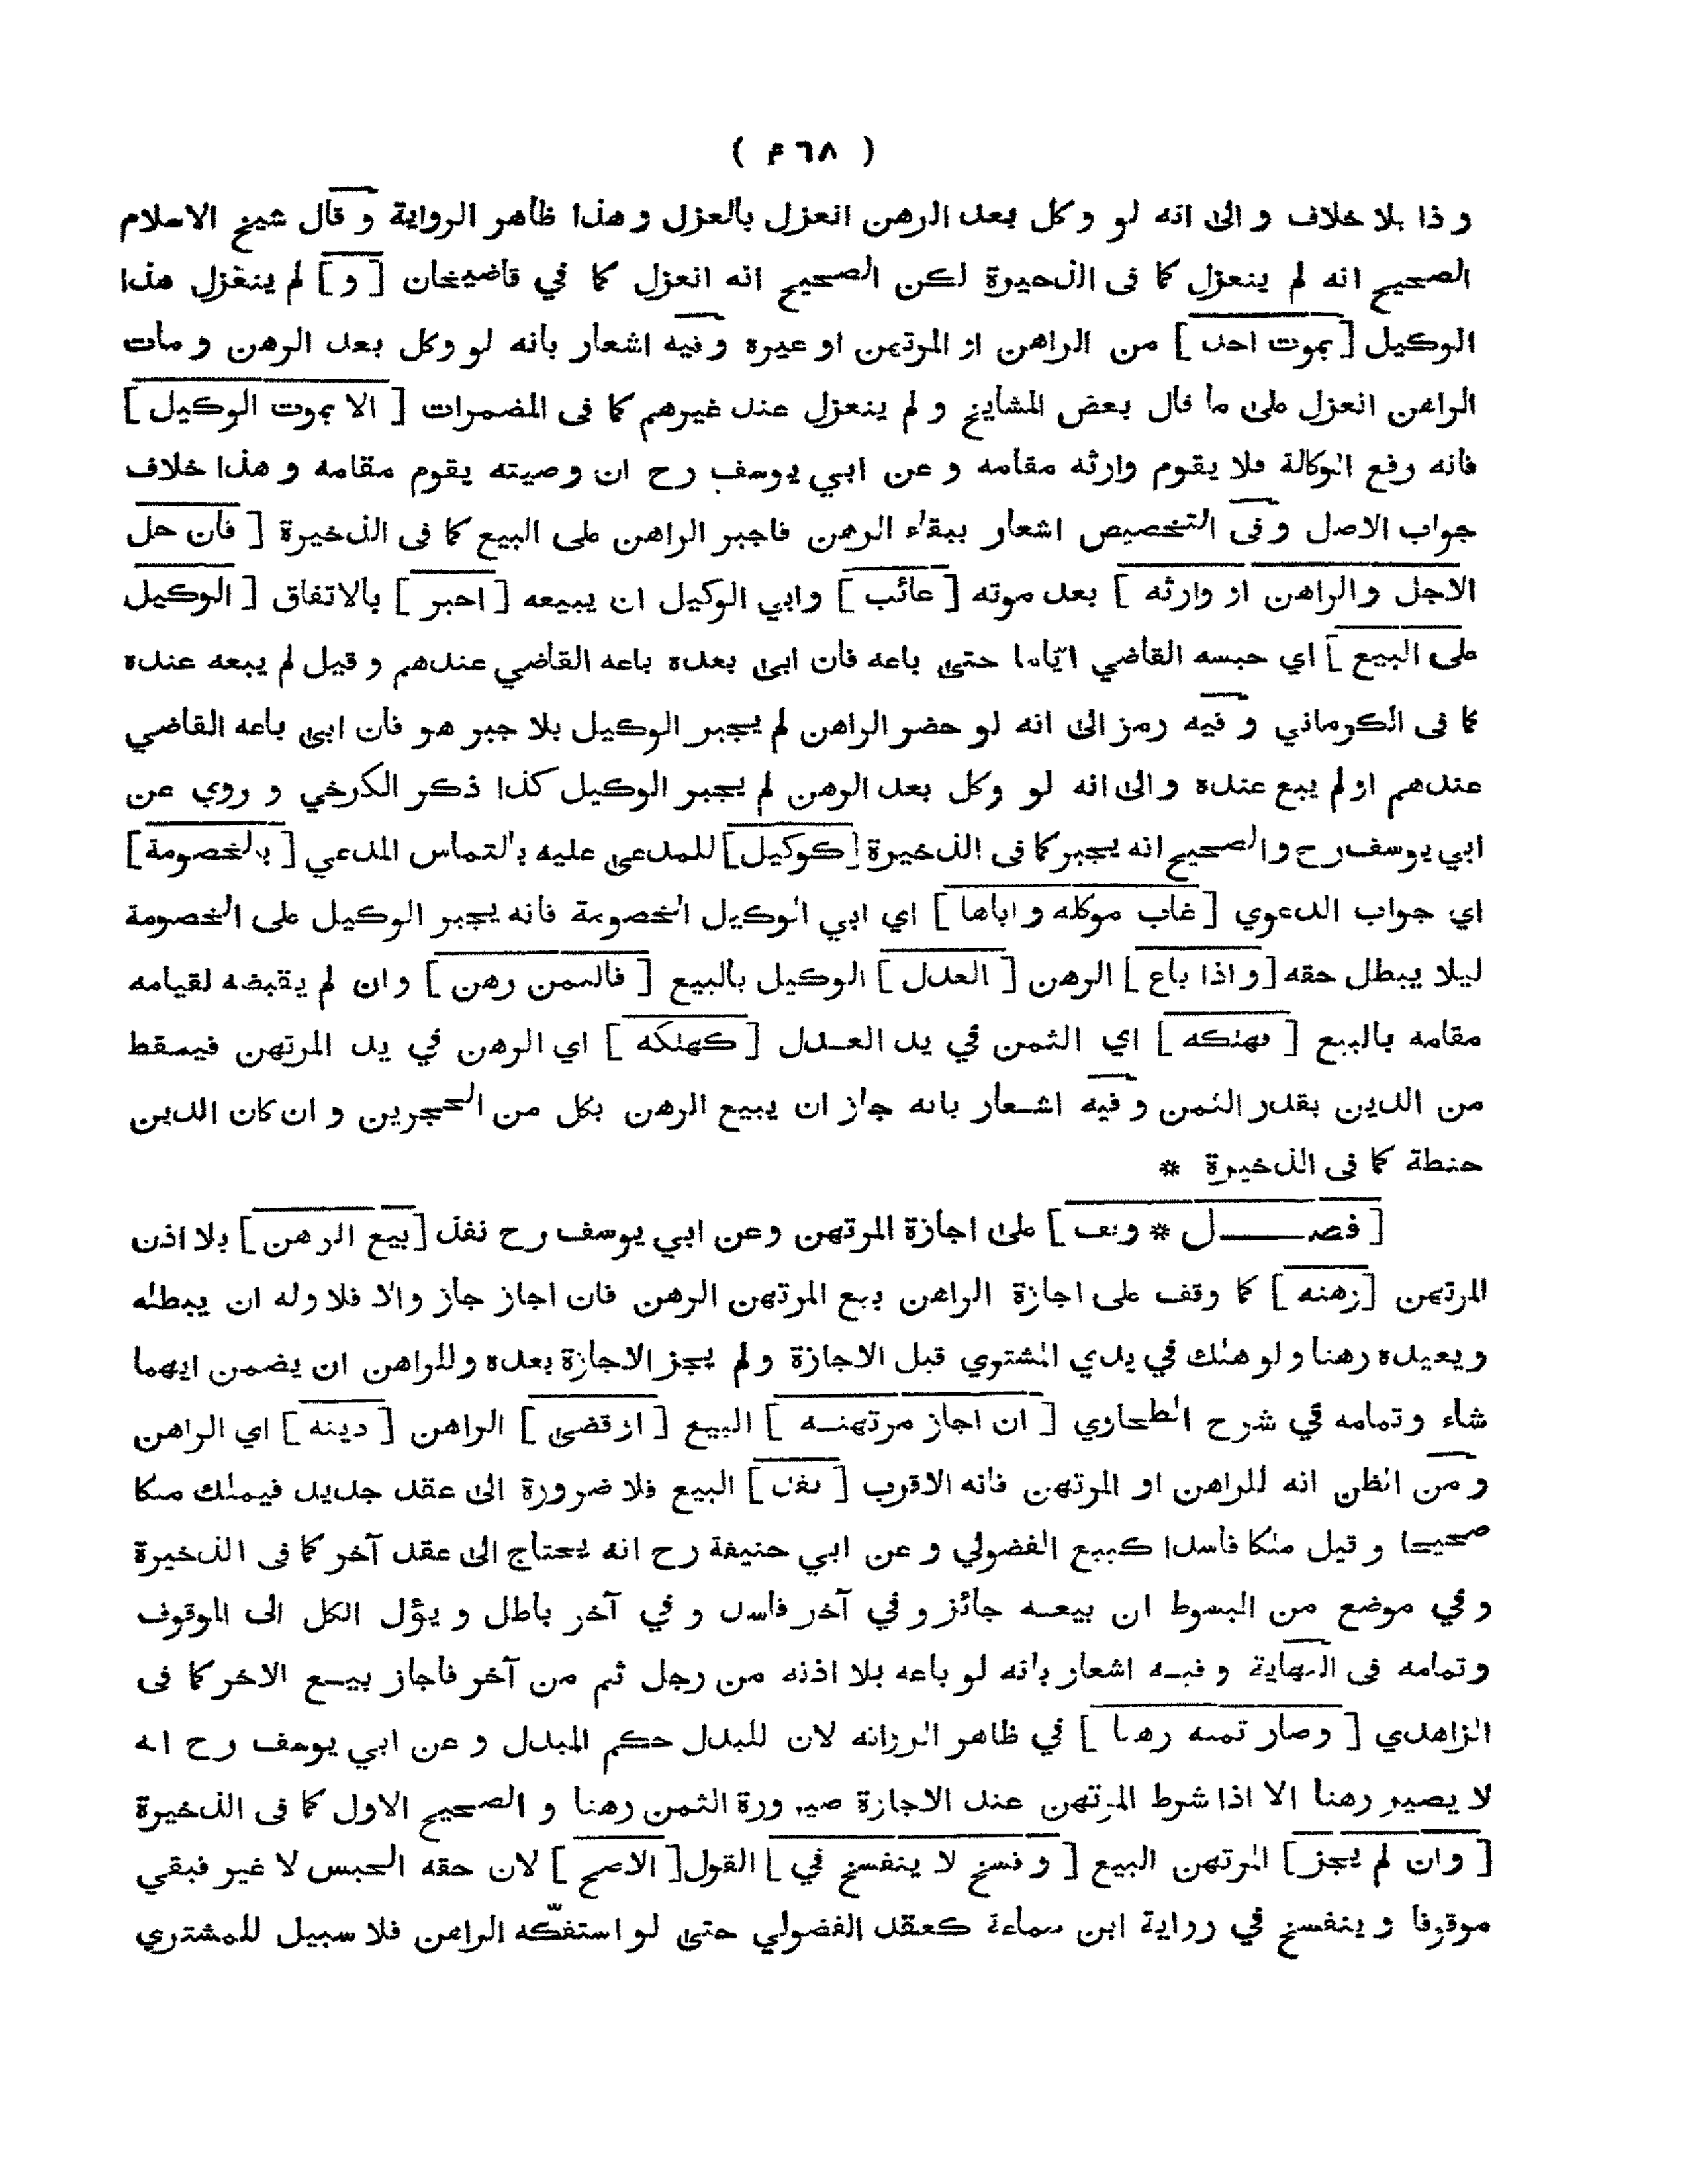 ( ۴٦٨ )
و ذا بلا خلاف و الى انه لو و كل بعد الرهن انعزل بالعزل و هذا ظاهر الرواية و قال شيخ الاسلام
الصحيح انه لم ينعزل كما فى الذخيرة لكن الصحيح انه انعزل كما في قاضيخان [ و ] لم ينعزل هذا
الوكيل [ بموت احد ] من الراهن او المرتهن او غيره و فيه اشعار بانه لو وكل بعد الرهن و مات
الراهن انعزل على ما قال بعض المشايخ و لم ينعزل عند غيرهم كما فى المضمرات [ الا بموت الوكيل ]
فانه رفع الوكالة فلا يقوم وارثه مقامه و عن ابي يوسف رح ان وصيته يقوم مقامه و هذا خلاف
جواب الاصل و فى التخصيص اشعار ببقاء الرهن فاجبر الراهن على البيع كما فى الذخيرة [ فان حل
الاجل والراهن او وارثه ] بعد موته [ غائب ] وابي الوكيل ان يبيعه [ اجبر ] بالاتفاق [ الوكيل
على البيع ] اي حبسه القاضي اياما حتى باعه فان ابى بعده باعه القاضي عندهم و قيل لم يبعه عنده
كما فى الكرماني و فيه رمز الى انه لو حضر الراهن لم يجبر الوكيل بلا جبر هو فان ابى باعه القاضي
عندهم او لم يبع عنده و الى انه لو وكل بعد الرهن لم يجبر الوكيل كذا ذكر الكرخي و روي عن
ابي يوسف رح و الصحيح انه يجبر كما فى الذخيرة [ كوكيل ] للمدعى عليه بالتماس المدعي [ بالخصومة ]
اي جواب الدعوي [ غاب موكله و اباها ] اي ابي الوكيل الخصومة فانه يجبر الوكيل على الخصومة
ليلا يبطل حقه [ و اذا باع ] الرهن [ العدل ] الوكيل بالبيع [ فالثمن رهن ] و ان لم يقبضه لقيامه
مقامه بالبيع [ فهلكه ] اي الثمن في يد العدل [ كهلكه ] اي الرهن في يد المرتهن فيسقط
من الدين بقدر الثمن و فيه اشعار بانه جاز ان يبيع الرهن بكل من الحجرين و ان كان الدين
حنطة كما فى الذخيرة *
[ فصل * وقف ] على اجازة المرتهن وعن ابي يوسف رح نفذ [ بيع الرهن ] بلا اذن
المرتهن [ رهنه ] كما وقف على اجازة الراهن بيع المرتهن الرهن فان اجاز جاز والا فلا وله ان يبطله
و يعيده رهنا و لو هلك في يدي المشتري قبل الاجازة و لم يجز الاجازة بعده وللراهن ان يضمن ايهما
شاء و تمامه في شرح الطحاوي [ ان اجاز مرتهنه ] البيع [ او قضى ] الراهن [ دينه ] اي الراهن
و من الظن انه للراهن او المرتهن فانه الاقرب [ نفذ ] البيع فلا ضرورة الى عقد جديد فيملك ملكا
صحيحا و قيل ملكا فاسدا كبيع الفضولي و عن ابي حنيفة رح انه يحتاج الى عقد آخر كما فى الذخيرة
و في موضع من المبسوط ان بيعه جائز و في آخر فاسد و في آخر باطل و يؤل الكل الى الموقوف
و تمامه فى النهاية و فيه اشعار بانه لو باعه بلا اذنه من رجل ثم من آخر فاجاز بيع الاخر كما فى
الزاهدي [ وصار ثمنه رهنا ] في ظاهر الرواية لان للبدل حكم المبدل و عن ابي يوسف رح انه
لا يصير رهنا الا اذا شرط المرتهن عند الاجازة صيرورة الثمن رهنا و الصحيح الاول كما فى الذخيرة
[ وان لم يجز ] المرتهن البيع [ و فسخ لا ينفسخ في ] القول [ الاصح ] لان حقه الحبس لا غير فبقي
موقوفا و ينفسخ في رواية ابن سماعة كعقد الفضولي حتى لو استفكّه الراهن فلا سبيل للمشتري